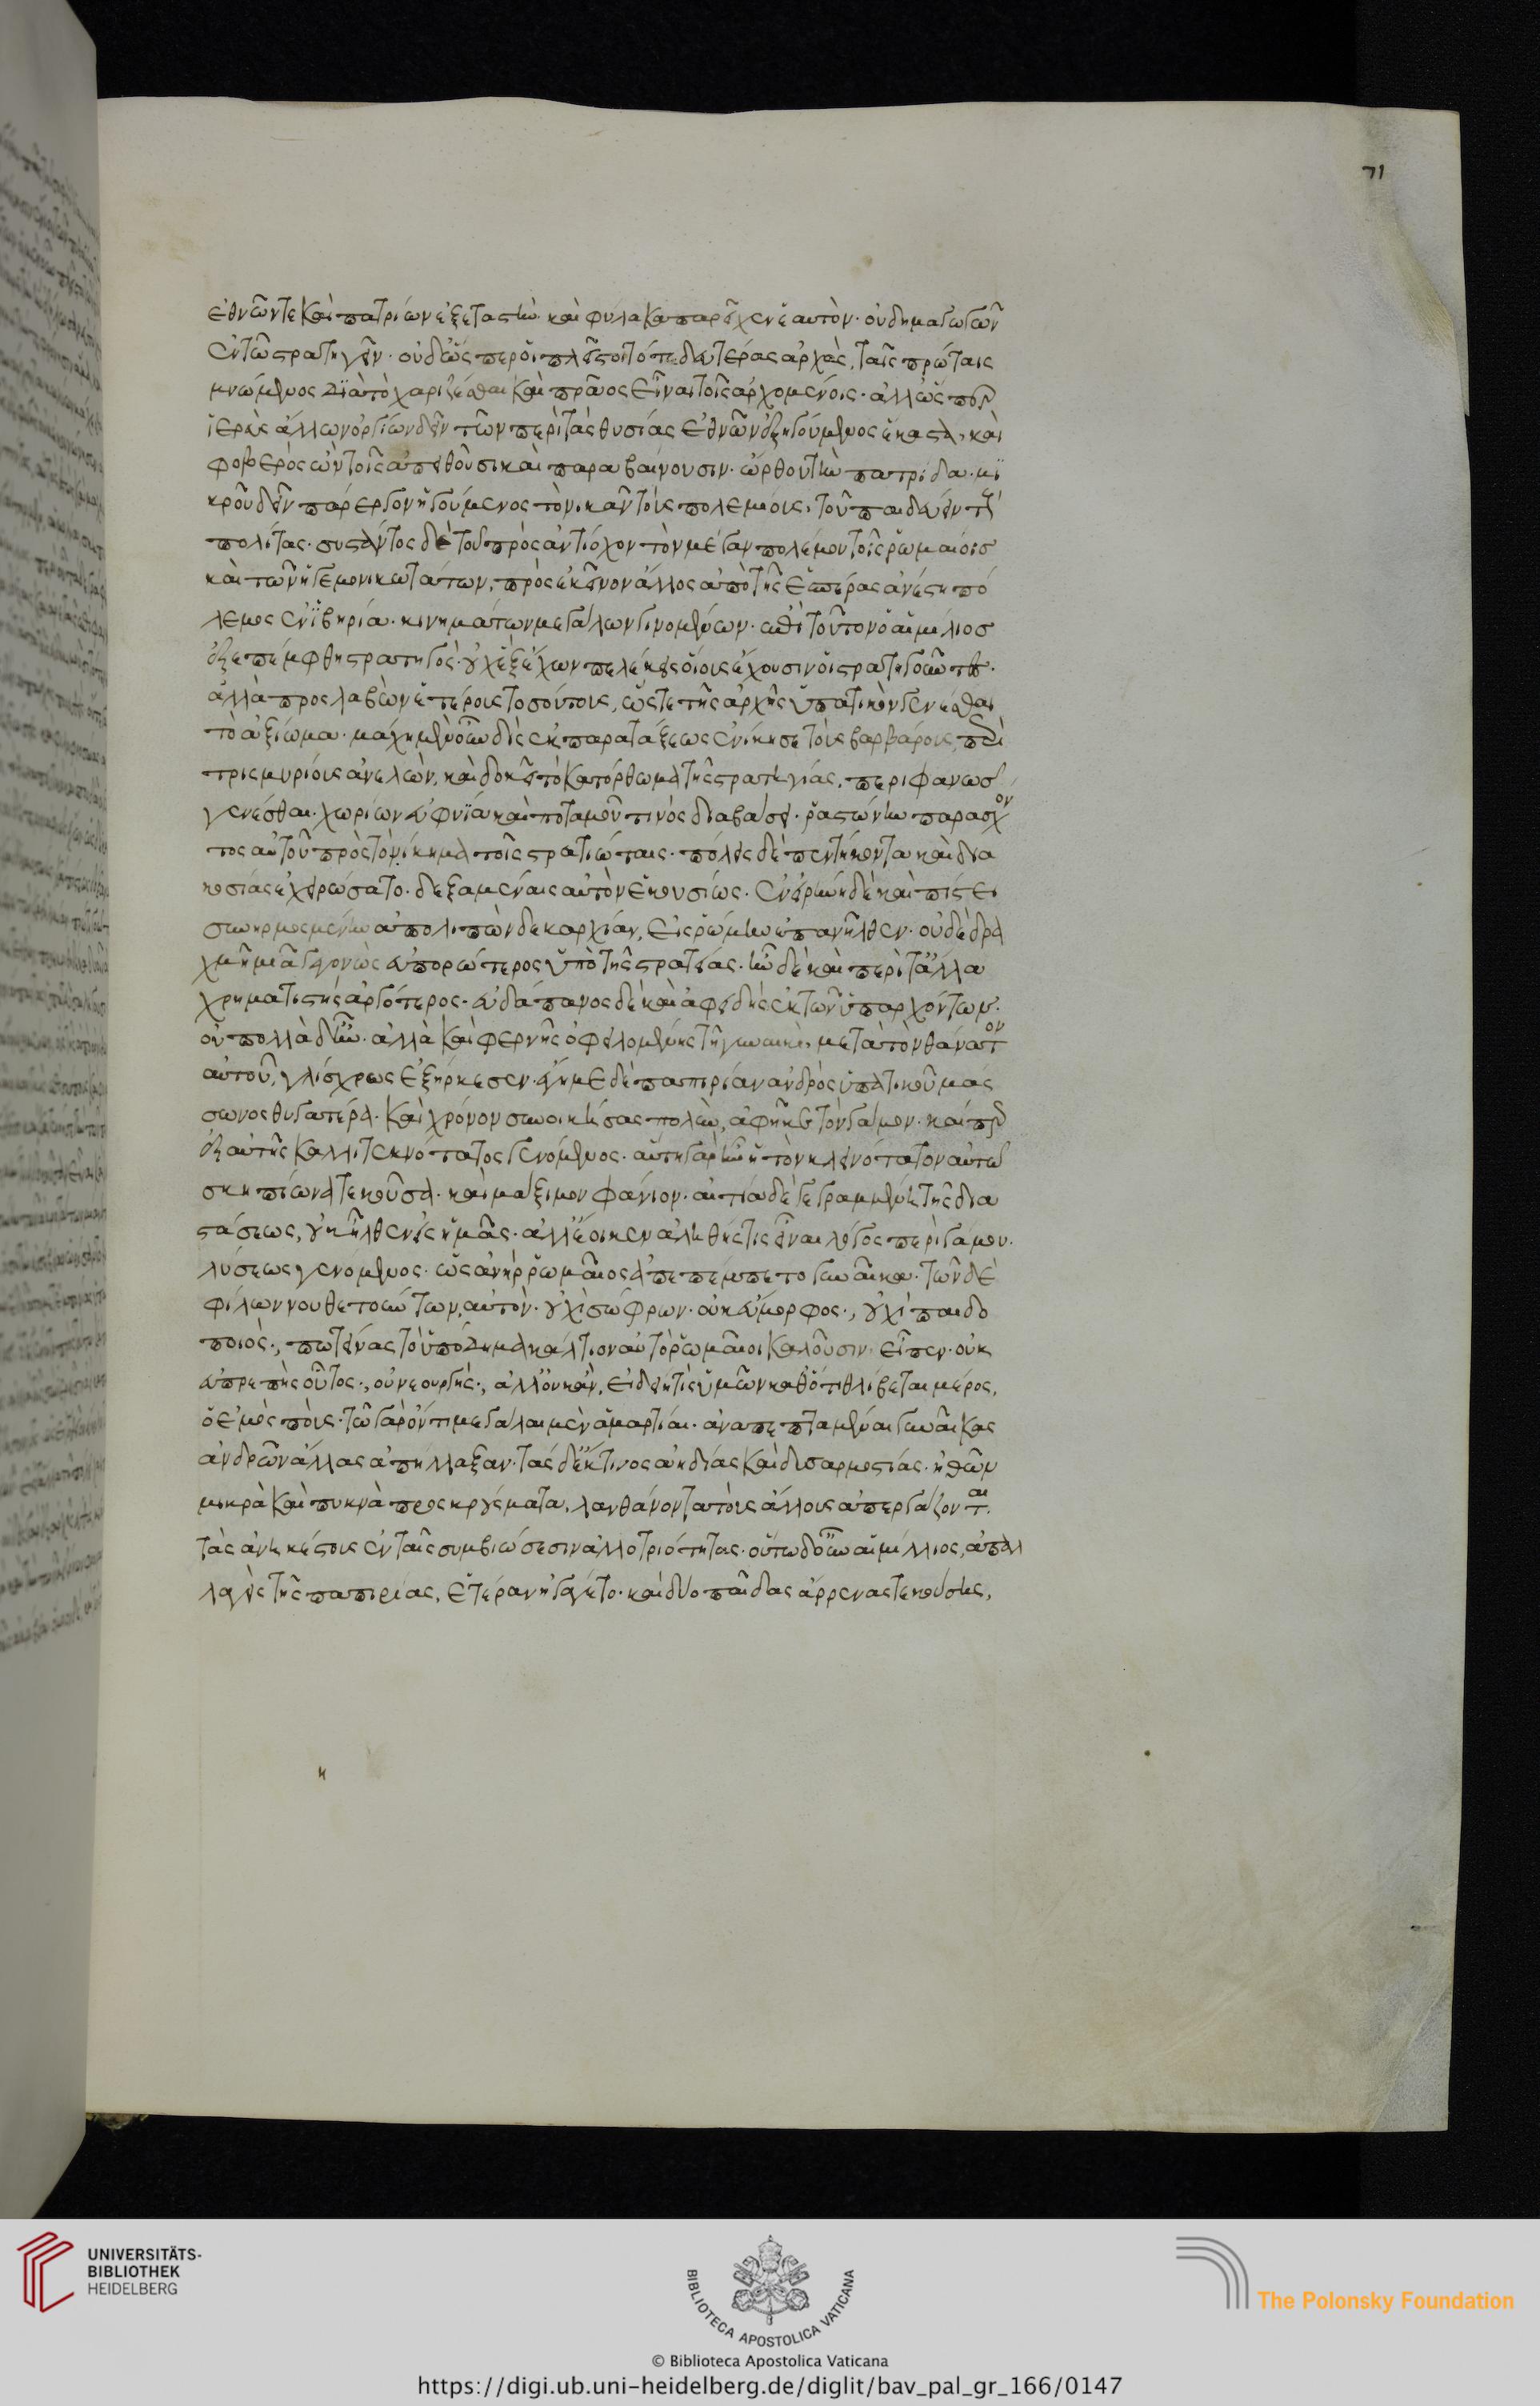 ἐθνῶν τε καὶ πατρίων ἐξεταστὴν καὶ φύλακα παρεῖχεν ἑαυτὸν· οὐ δημαγωγῶν
ἐν τῶ στρατηγεῖν· οὐδ' ὥσπερ οἱ πλεῖστοι τότε δευτέρας ἀρχὰς, ταῖς πρώταις
μνώμενος διὰ τὸ χαρίζεσθαι καὶ πρᾶος εἶναι τοῖς ἀρχομένοις· ἀλλ' ὥσπερ
ἱερεὺς ἄλλων ὀργίων δεῖν τῶν περὶ τὰς θυσίας ἐθνῶν ἐξηγούμενος ἕκαστα, καὶ
φοβερὸς ὢν τοῖς ἀπειθοῦσι καὶ παραβαίνουσιν· ὤρθου τὴν πατρίδα· μι
κροῦ δεῖν πάρεργον ἡγούμενος τὸ νικᾶν τοὺς πολεμίους, τοῦ παιδεύειν τοὺς
πολίτας· συστάντος δὲ τοῦ πρὸς ἀντίοχον τὸν μέγαν πολέμου τοῖς ῥωμαίοις
καὶ τῶν ἡγεμονικωτάτων, πρὸς ἐκεῖνον ἄλλος ἀπὸ τῆς ἑσπέρας ἀνέστη πό
λεμος ἐν ἰβηρία· κινημάτων μεγάλων γινομένων· ἐπὶ τοῦτον ὁ αἰμίλιος
ἐξεπέμφθη στρατηγὸς· οὐχ ἓξ ἔχων πελέκεις οἵους ἔχουσιν οἱ στρατηγοῦντες·
ἀλλὰ προσλαβὼν ἑτέρους τοσούτους, ὥστε τῆς ἀρχῆς ὑπατικὸν γενέσθαι
τὸ ἀξίωμα· μάχη μὲν οὖν δὶς ἐκ παρατάξεως ἐνίκησε τοὺς βαρβάρους, περὶ
τρισμυρίους ἀνελὼν, καὶ δοκεῖ τὸ κατόρθωμα τῆς στρατηγίας, περιφανῶς
γενέσθαι· χωρίων εὐφυΐα καὶ ποταμοῦ τινὸς διαβάσει· ῥαστώνην παρασχόν
τος αὐτοῦ πρὸς τὸ νίκημα τοῖς στρατιώταις· πόλεις δὲ πεντήκοντα καὶ δια
κοσίας ἐχειρώσατο· δεξαμένας αὐτὸν ἑκουσίως· ἐν εἰρήνη δὲ καὶ πίστει
συνηρμοσμένην ἀπολιπὼν δεκαρχίαν, εἰς ῥώμην ἐπανῆλθεν· οὐδὲ δρα
χμῆ μιᾶ γεγονὼς εὐπορώτερος ὑπὸ τῆς στρατείας· ἦν δὲ καὶ περὶ τἄλλα
χρηματιστὴς ἀργότερος· εὐδάπανος δὲ καὶ ἀφειδὴς ἐκ τῶν ὑπαρχόντων·
οὐ πολλὰ δ' ἦν· ἀλλὰ καὶ φερνῆς ὀφειλομένης τῆ γυναικὶ, μετὰ τὸν θάνατον
αὐτοῦ, γλίσχρως ἐξήρκεσεν· ἔγημε δὲ παπιρίαν ἀνδρὸς ὑπατικοῦ μάσ
σωνος θυγατέρα· καὶ χρόνον συνοικήσας πολὺν, ἀφῆκε τὸν γάμον· καίπερ
ἐξ αὐτῆς καλλιτεκνότατος γενόμενος· αὕτη γὰρ ἦν ἡ τὸν κλεινότατον αὐτῶ
σκηπίωνα τεκοῦσα· καὶ μάξιμον φάνιον· αἰτία δὲ γεγραμμένη τῆς δια
στάσεως, οὐκ ἦλθεν εἰς ἡμᾶς· ἀλλ' ἔοικεν ἀληθής τις εἶναι λόγος περὶ γάμου
λύσεως γενόμενος· ὡς ἀνὴρ ῥωμαῖος ἀπεπέμπετο γυναῖκα· τῶν δὲ
φίλων νουθετούντων αὐτὸν· οὐχὶ σώφρων· οὐκ εὔμορφος·, οὐχὶ παιδο
ποιὸς·, προτείνας τὸ ὑπόδημα κάλτιον αὐτὸ ῥωμαῖοι καλοῦσιν· εἶπεν· οὐκ
εὐπρεπὴς οὗτος·, οὐ νεουργὴς·, ἀλλ' οὐκ ἂν, εἰδείη τὶς ὑμῶν καθ' ὅτι θλίβεται μέρος,
ὁ ἐμὸς ποὺς· τῶ γὰρ ὄντι μεγάλαι μὲν ἁμαρτίαι· ἀναπεπταμέναι γυναῖκας
ἀνδρῶν ἄλλας ἀπήλλαξαν· τὰς δ' ἔκ τινος ἀηδίας καὶ δυσαρμοστίας· ἠθῶν
μικρὰ καὶ πυκνὰ προσκρούματα, λανθάνοντα τοὺς ἄλλους ἀπεργάζονται
τὰς ἀνηκέστους ἐν ταῖς συμβιώσεσιν ἀλλοτριότητας· οὕτω δ' οὖν αἰμίλλιος, ἀπαλ
λαγεὶς τῆς παπιρίας, ἑτέραν ἠγάγετο· καὶ δύο παῖδας ἄρρενας τεκούσης,
71
UNIVERSITÄTS-
BIBLIOTHEK
HEIDELBERG
BIBLIOTECA APOSTOLICA VATICANA
The Polonsky Foundation
© Biblioteca Apostolica Vaticana
https://digi.ub.uni-heidelberg.de/diglit/bav_pal_gr_166/0147